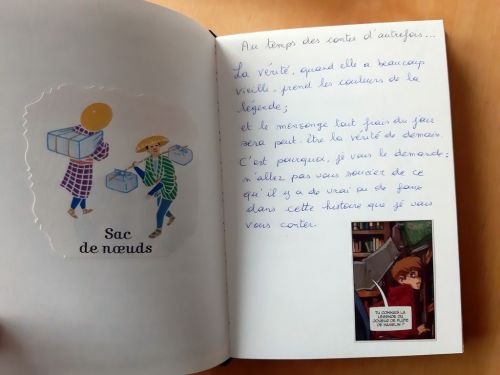 Sac
de nœuds
Au temps des contes d'autrefois...
La vérité, quand elle a beaucoup
vieilli, prend les couleurs de la
légende;
et le mensonge tout frais du jour
sera peut-être la vérité de demain.
C'est pourquoi, je vous le demande:
n'allez pas vous soucier de ce
qu'il y a de vrai ou de faux
dans cette histoire que je vais
vous conter.
TU CONNAIS LA
LÉGENDE DU
JOUEUR DE FLÛTE
DE HAMELIN ?